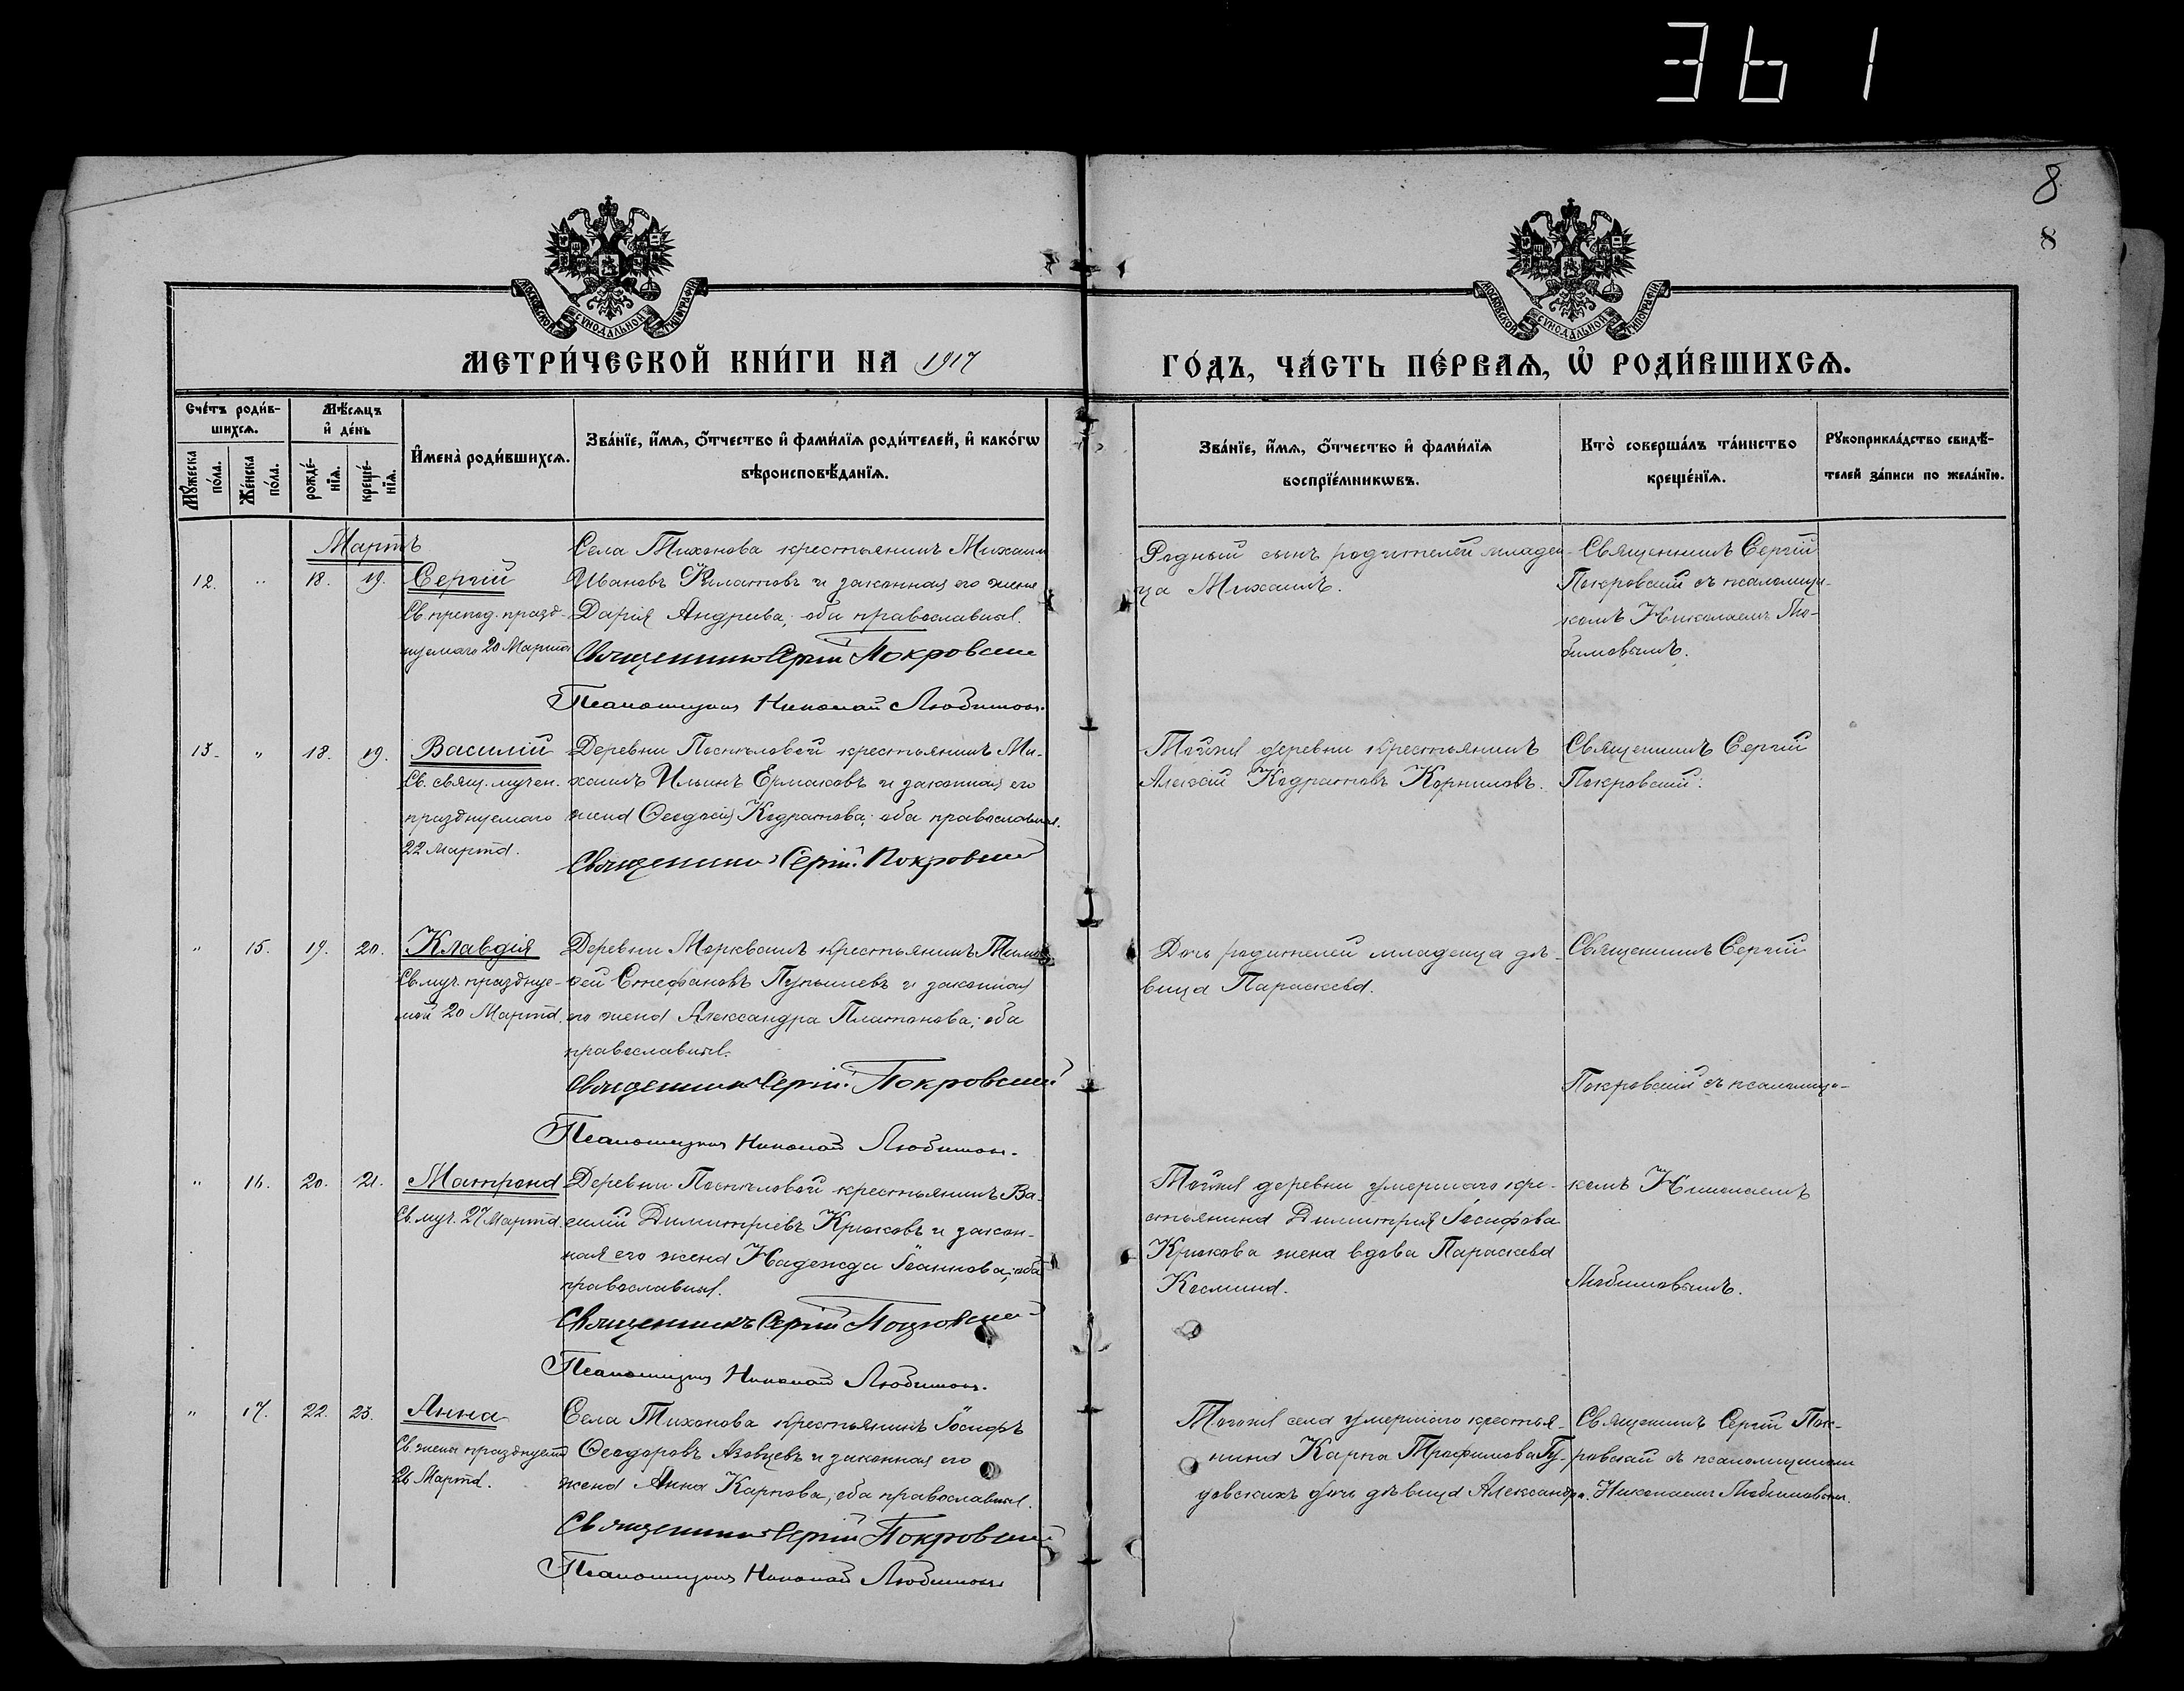 361
8
8
МОСКОВСКОЙ СѴНОДАЛЬНОЙ ТИПОГРАФІИ
МОСКОВСКОЙ СѴНОДАЛЬНОЙ ТИПОГРАФІИ
МЕТРИ́ЧЕСКОЙ КНИ́ГИ НА 1917 ГО́ДЪ, ЧА́СТЬ ПЕ́РВАѦ, Ѡ҆ РОДИ́ВШИХСѦ.
Сче́тъ роди́в-
шихсѧ.
Мꙋ́жеска по́ла.
Же́нска по́ла.
Мѣ́сѧцъ
и҆ де́нь
рожде́-
нїѧ.
креще́-
нїѧ.
И҆мена̀ роди́вшихсѧ.
Зва́нїе, и҆́мѧ, ѻ҆́тчество и҆ фами́лїѧ роди́телей, и҆ како́гѡ
вѣроисповѣ́данїѧ.
Зва́нїе, и҆́мѧ, ѻ҆́тчество и҆ фами́лїѧ
воспрїе́мникѡвъ.
Кто̀ соверша́лъ та́инство
креще́нїѧ.
Рꙋкоприкла́дство свидѣ́-
телей за́писи по жела́нїю.
Мартъ
12. " 18. 19. Сергій
Св. препод. празд-
нуемаго 20 Марта
Села Тихонова крестьянинъ Михаил
Ивановъ Филатовъ и законная его жена
Дарія Андреева; оба православные.
Священникъ Сергій Покровскій
Псаломщикъ Николай Любимовъ.
Родный сынъ родителей младен-
ца Михаилъ.
Священникъ Сергій
Покровскій съ псаломщи-
комъ Николаемъ Лю-
бимовымъ.
13. " 18. 19. Василій
Св. свящ. мучен.
празднуемаго
22 Марта.
Деревни Поспѣловой крестьянинъ Ми-
хаилъ Ильинъ Ермаковъ и законная его
жена Ѳеодосія Кодратова; оба православные.
Священникъ Сергій Покровскій
Тойже деревни крестьянинъ
Алексій Кодратовъ Корниловъ.
Священникъ Сергій
Покровскій.
" 15. 19. 20. Клавдія
Св. муч. празднуе-
мой 20 Марта.
Деревни Моркваши крестьянинъ Тимо-
ѳей Стефановъ Пупышевъ и законная
его жена Александра Платонова; оба
православные.
Священникъ Сергій Покровскій
Псаломщикъ Николай Любимовъ.
Дочь родителей младенца дѣ-
вица Параскева.
Священникъ Сергій
Покровскій съ псаломщи-
" 16. 20. 21. Матрона
Св. муч. 27 Марта.
Деревни Поспѣловой крестьянинъ Ва-
силій Димитріевъ Крюковъ и закон-
ная его жена Надежда Іоаннова; оба
православные.
Священникъ Сергій Покровскій
Псаломщикъ Николай Любимовъ.
Тойже деревни умершаго кре-
стьянина Димитрія Іосифова
Крюкова жена вдова Параскева
Космина.
комъ Николаемъ
Любимовымъ.
" 17. 22. 23. Анна
Св. жена празднуемая
26 Марта.
Села Тихонова крестьянинъ Іосифъ
Ѳеодоровъ Азовцевъ и законная его
жена Анна Карпова; оба православные.
Священникъ Сергій Покровскій
Псаломщикъ Николай Любимовъ
Тогоже села умершаго крестья-
нина Карпа Трофимова Гу-
довскихъ дочь дѣвица Александра.
Священникъ Сергій Пок-
ровскій съ псаломщикомъ
Николаемъ Любимовымъ.